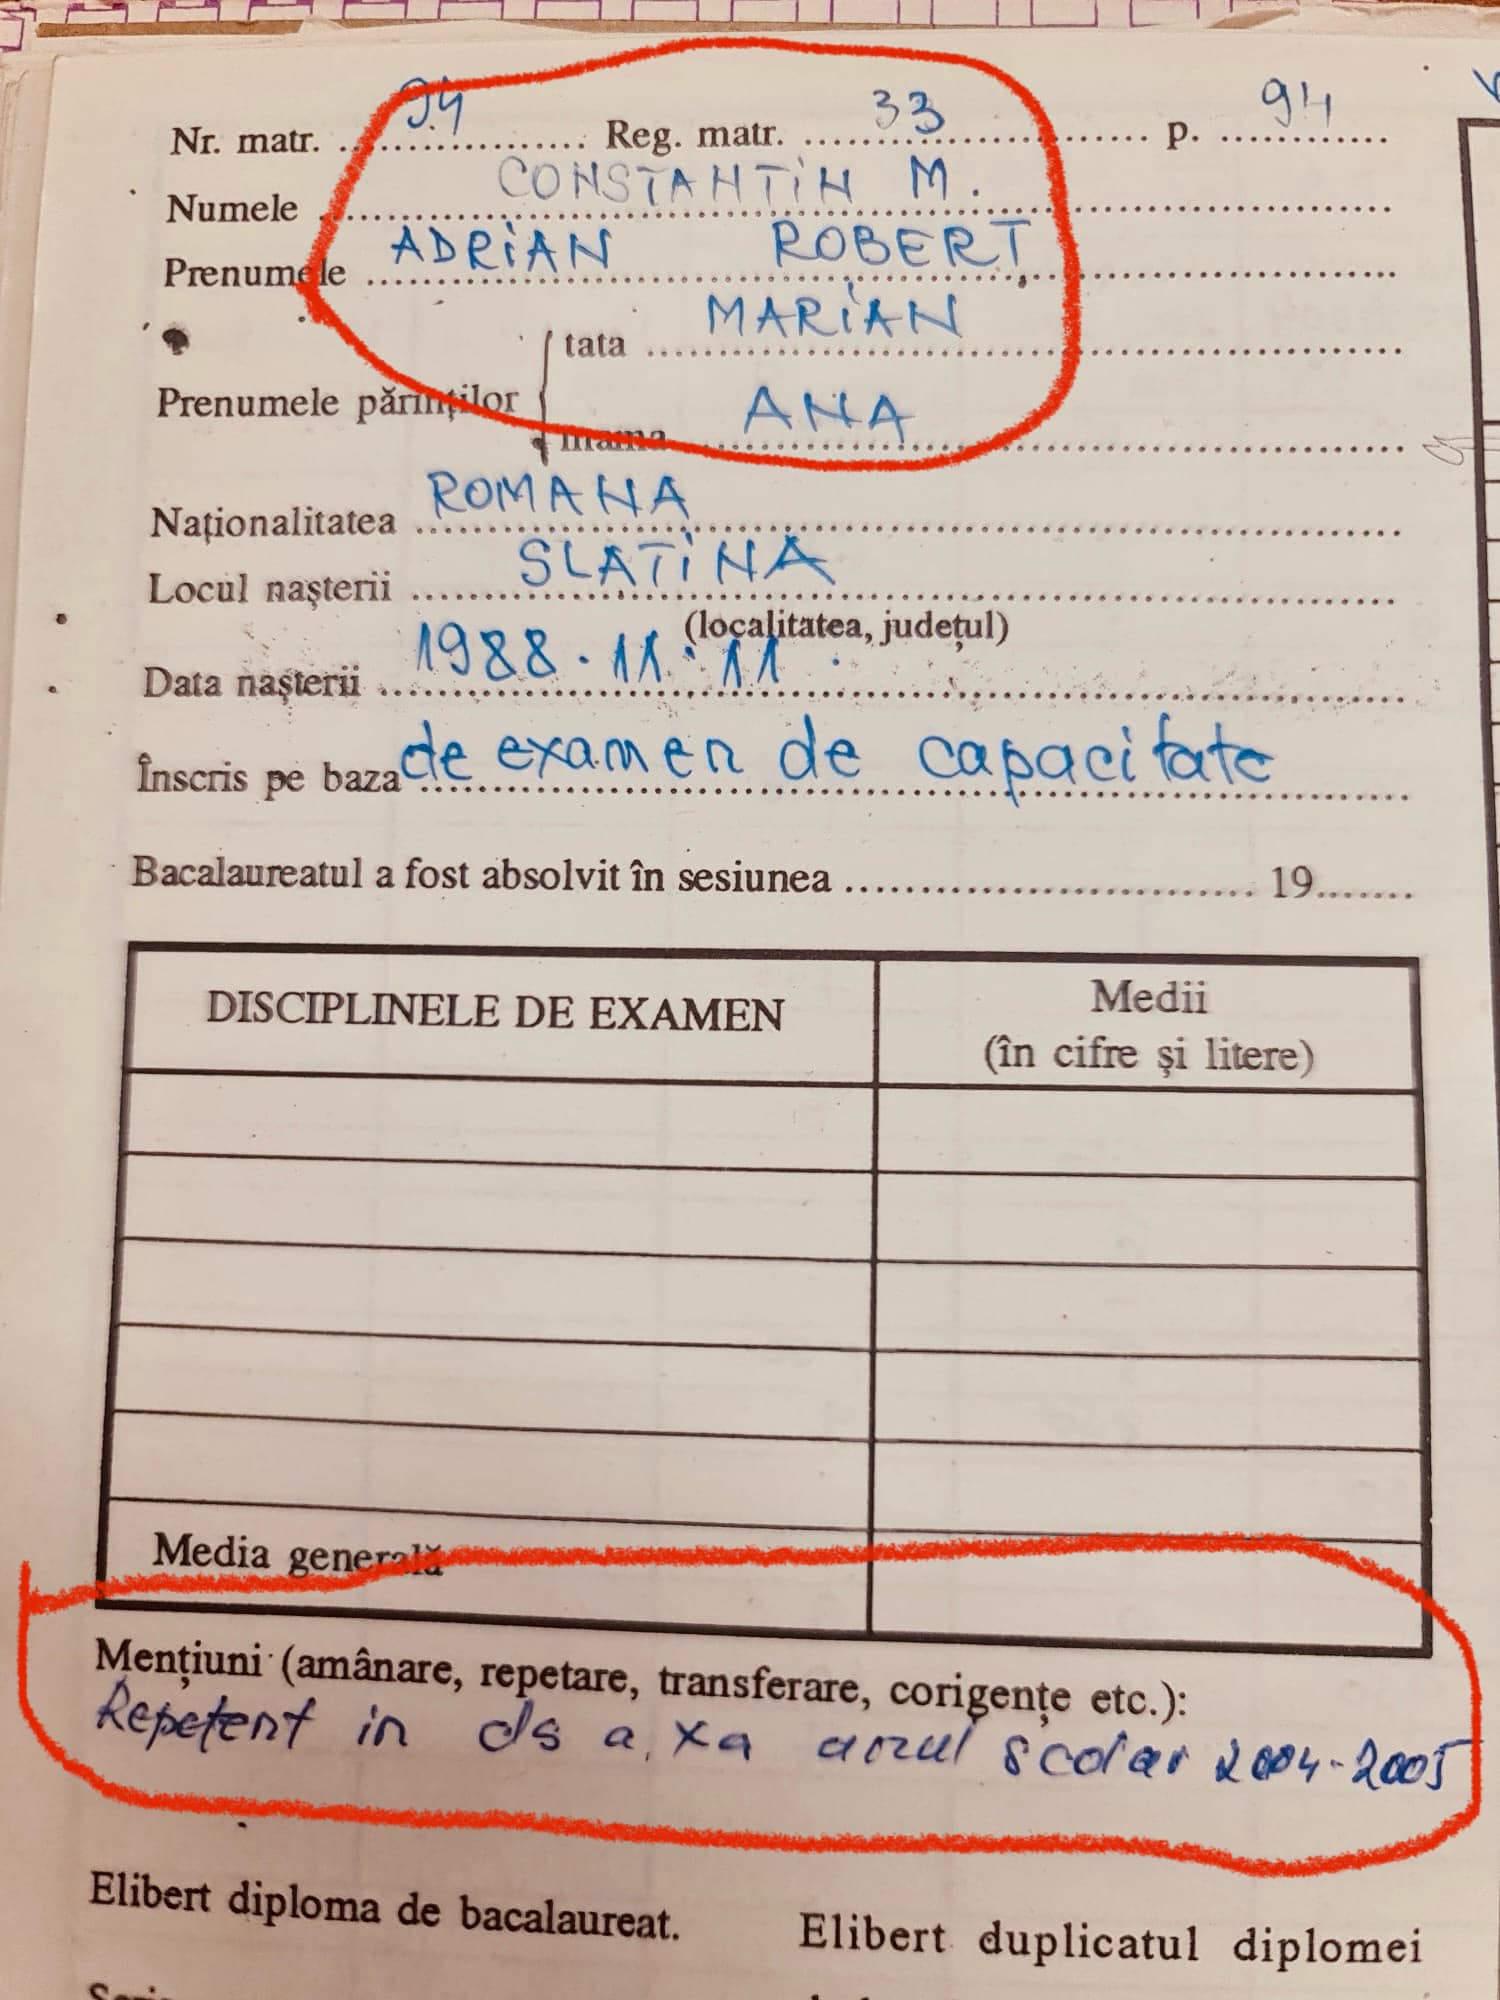 Nr. matr. 94 Reg. matr. 33 p. 94
Numele CONSTANTIN M.
Prenumele ADRIAN ROBERT
tata MARIAN
Prenumele părinților
mama ANA
Naționalitatea ROMANA
Locul nașterii SLATINA
(localitatea, județul)
Data nașterii 1988.11.11.
Înscris pe baza de examen de capacitate
Bacalaureatul a fost absolvit în sesiunea 19
DISCIPLINELE DE EXAMEN Medii
(în cifre și litere)
Media generală
Mențiuni (amânare, repetare, transferare, corigențe etc.):
Repetent in cls a.Xa anul școlar 2004-2005
Elibert diploma de bacalaureat. Elibert duplicatul diplomei